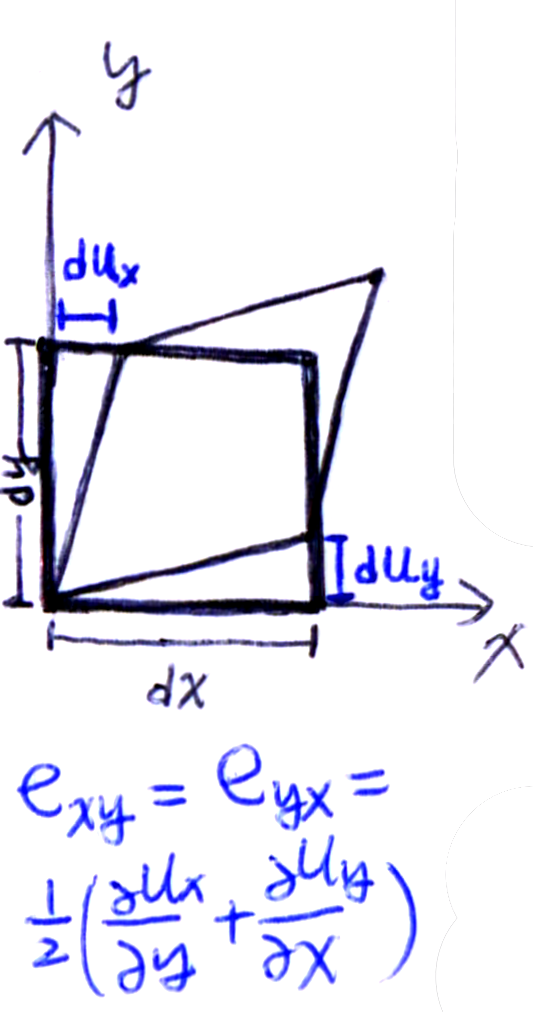 y
dux
dy
duy
x
dx
exy = eyx =
1/2(∂ux/∂y + ∂uy/∂x)